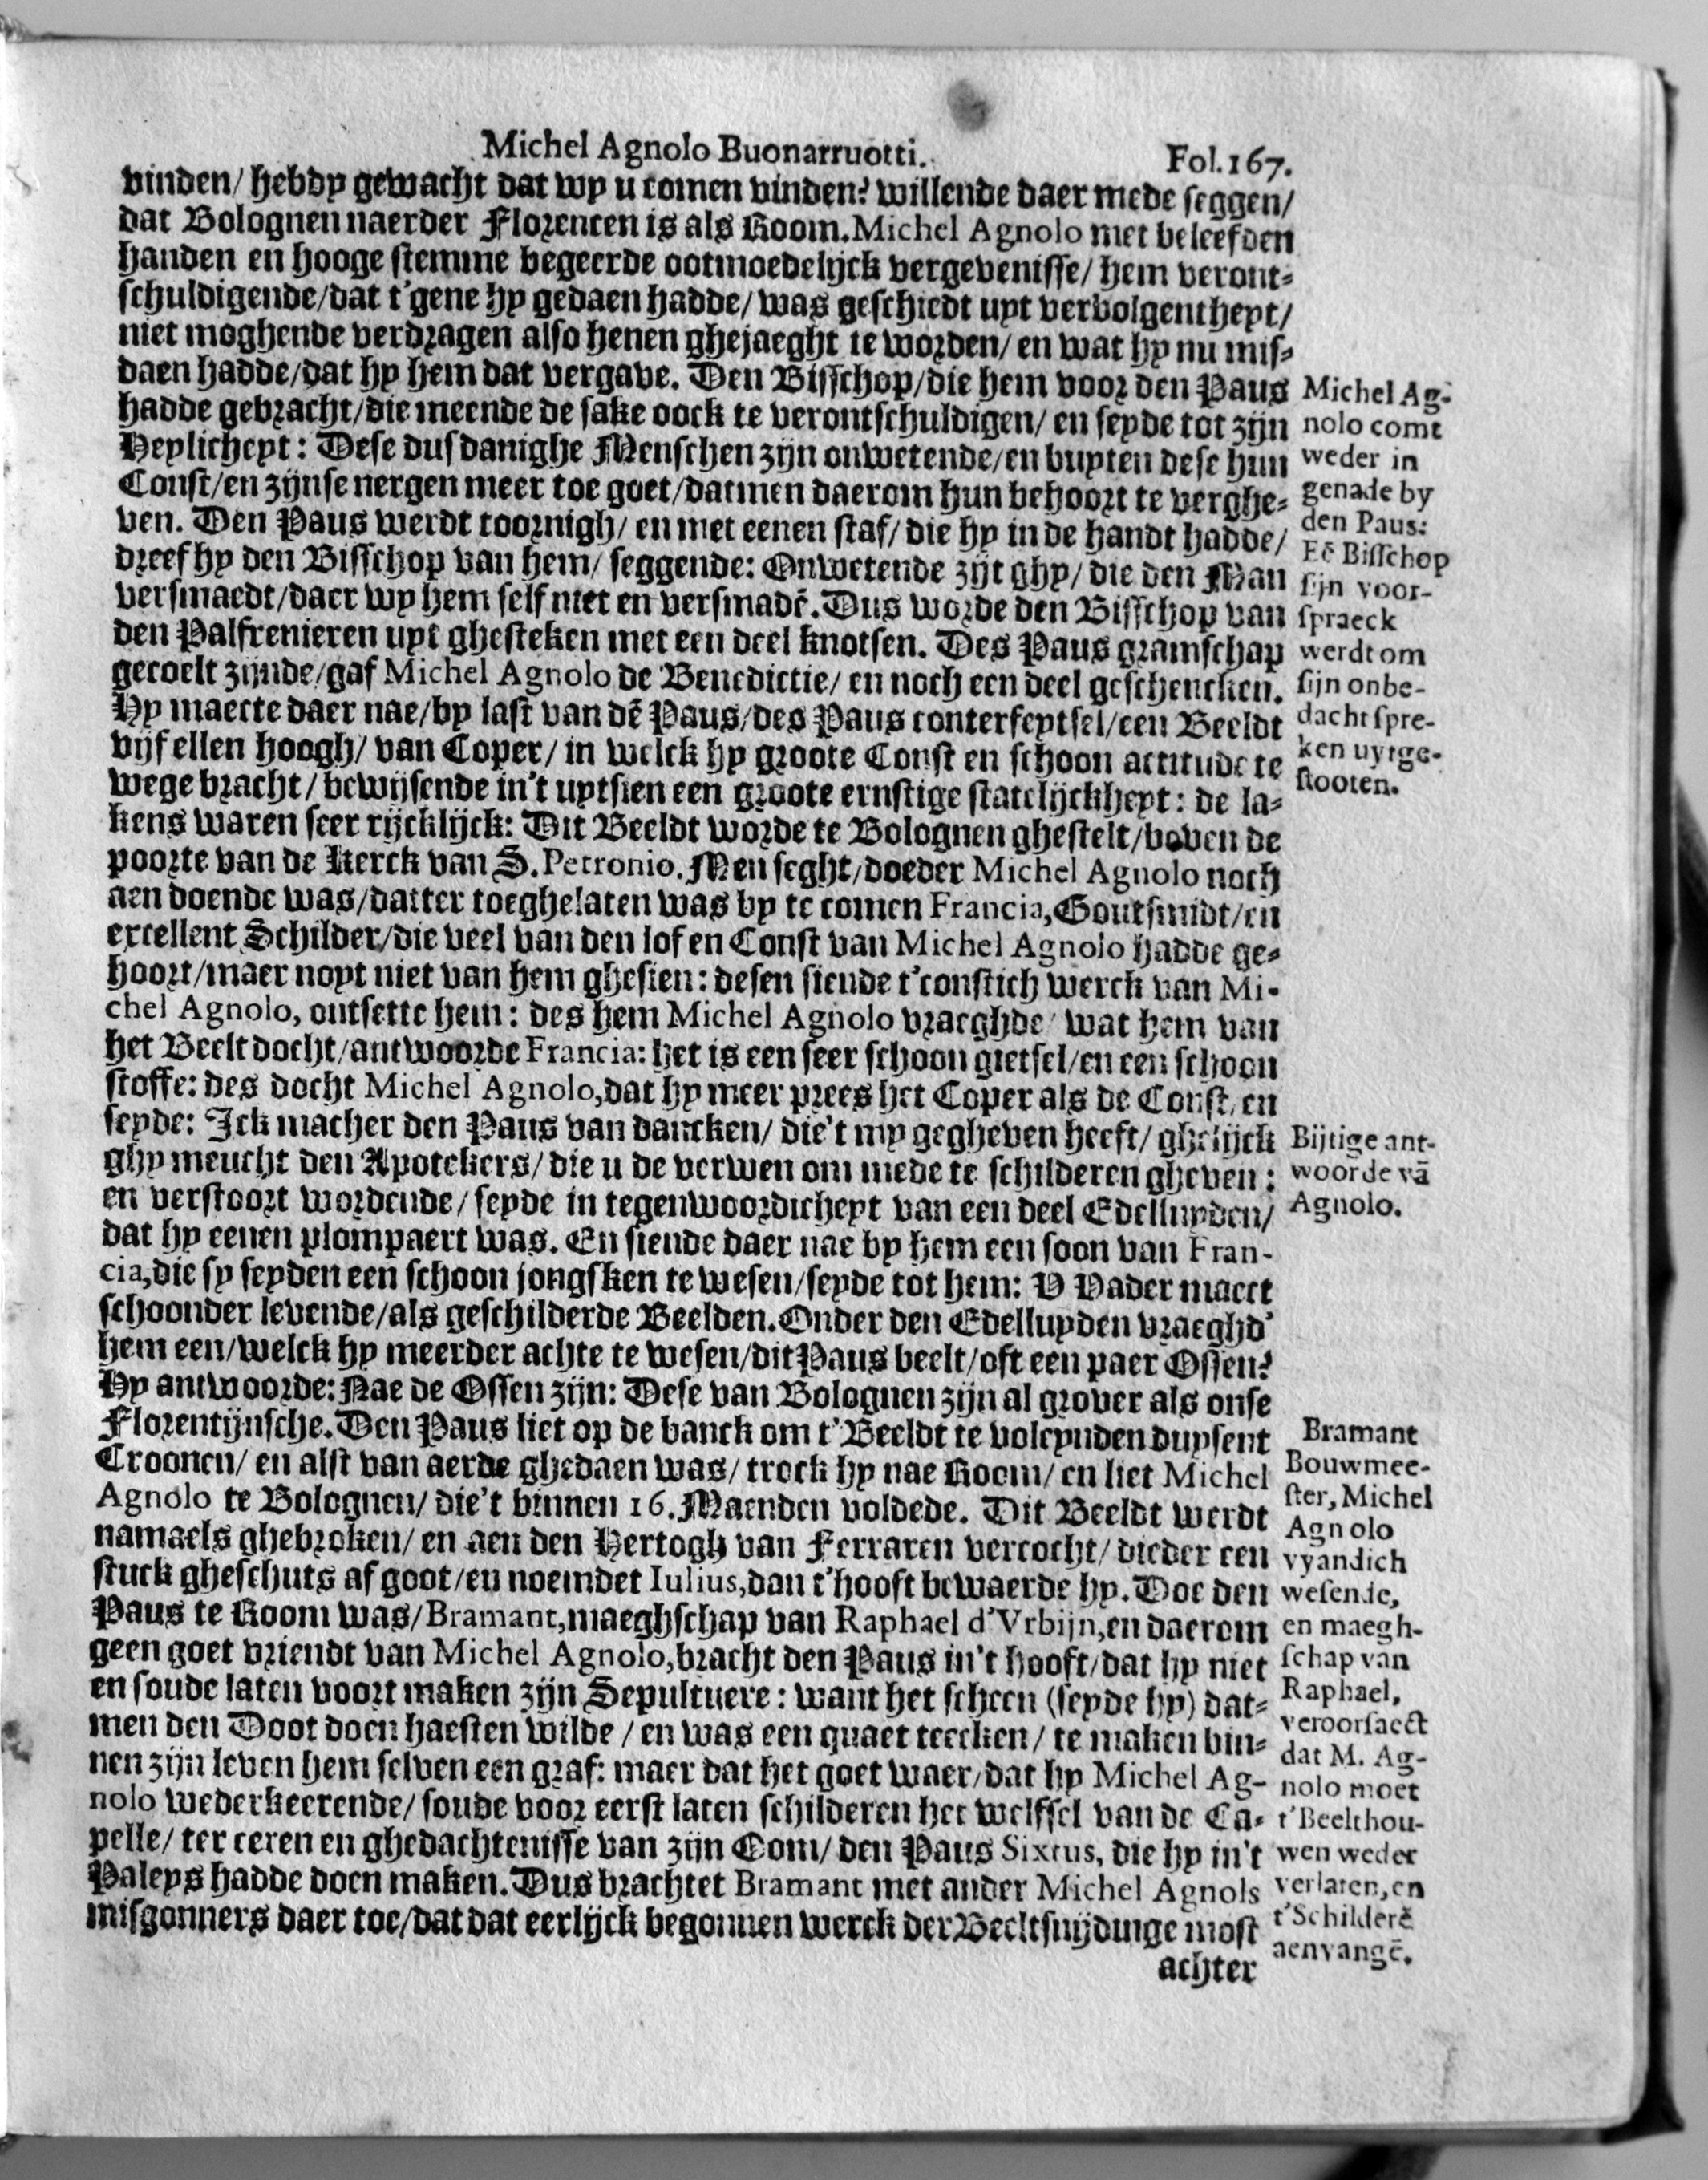 Michel Agnolo Buonarruotti. Fol.167.
vinden/ hebdy gewacht dat wy u comen vinden? willende daer mede seggen/
dat Bolognen naerder Florencen is als Room. Michel Agnolo met beleefden
handen en hooge stemme begeerde ootmoedelijck vergevenisse/ hem veront-
schuldigende/dat t'gene hy gedaen hadde/ was geschiedt uyt vervolgentheyt/
niet moghende verdragen also henen ghejaeght te worden/ en wat hy nu mis-
daen hadde/dat hy hem dat vergave. Den Bisschop/die hem voor den Paus
hadde gebracht/die meende de sake oock te verontschuldigen/ en seyde tot zijn
Heylicheyt: Dese dusdanighe Menschen zijn onwetende/en buyten dese hun
Const/en zijnse nergen meer toe goet/datmen daerom hun behoort te verghe-
ven. Den Paus werdt toornigh/ en met eenen staf/ die hy in de handt hadde/
dreef hy den Bisschop van hem/ seggende: Onwetende zijt ghy/ die den Man
versmaedt/daer wy hem self niet en versmadē. Dus worde den Bisschop van
den Palfrenieren uyt ghesteken met een deel knotsen. Des Paus gramschap
gecoelt zijnde/gaf Michel Agnolo de Benedictie/ en noch een deel geschencken.
Hy maecte daer nae/by last van dē Paus/des Paus conterfeytsel/een Beeldt
vijf ellen hoogh/ van Coper/ in welck hy groote Const en schoon actitude te
wege bracht/ bewijsende in't uytsien een groote ernstige statelijckheyt: de la-
kens waren seer rijcklijck: Dit Beeldt worde te Bolognen ghestelt/boven de
poorte van de Kerck van S. Petronio. Men seght/doeder Michel Agnolo noch
aen doende was/datter toeghelaten was by te comen Francia, Goutsmidt/en
excellent Schilder/die veel van den lof en Const van Michel Agnolo hadde ge-
hoort/maer noyt niet van hem ghesien: desen siende t'constich werck van Mi-
chel Agnolo, ontsette hem: des hem Michel Agnolo vraeghde/ wat hem van
het Beelt docht/antwoorde Francia: het is een seer schoon gietsel/en een schoon
stoffe: des docht Michel Agnolo, dat hy meer prees het Coper als de Const, en
seyde: Ick macher den Paus van dancken/ die't my gegheven heeft/ ghelijck
ghy meucht den Apotekers/ die u de verwen om mede te schilderen gheven:
en verstoort wordende/ seyde in tegenwoordicheyt van een deel Edelluyden/
dat hy eenen plompaert was. En siende daer nae by hem een soon van Fran-
cia, die sy seyden een schoon jongsken te wesen/seyde tot hem: V Vader maect
schoonder levende/als geschilderde Beelden. Onder den Edelluyden vraeghd'
hem een/welck hy meerder achte te wesen/dit Paus beelt/oft een paer Ossen?
Hy antwoorde: Nae de Ossen zijn: Dese van Bolognen zijn al grover als onse
Florentijnsche. Den Paus liet op de banck om t'Beeldt te voleynden duysent
Croonen/ en alst van aerde ghedaen was/ trock hy nae Room/ en liet Michel
Agnolo te Bolognen/ die't binnen 16. Maenden voldede. Dit Beeldt werdt
namaels ghebroken/ en aen den Hertogh van Ferraren vercocht/ dieder een
stuck gheschuts af goot/en noemdet Iulius, dan t'hooft bewaerde hy. Doe den
Paus te Room was/ Bramant, maeghschap van Raphael d'Vrbijn, en daerom
geen goet vriendt van Michel Agnolo, bracht den Paus in't hooft/dat hy niet
en soude laten voort maken zijn Sepultuere: want het scheen (seyde hy) dat-
men den Doot doen haesten wilde / en was een quaet teecken/ te maken bin-
nen zijn leven hem selven een graf: maer dat het goet waer/dat hy Michel Ag-
nolo wederkeerende/ soude voor eerst laten schilderen het welfsel van de Ca-
pelle/ ter eeren en ghedachtenisse van zijn Oom/ den Paus Sixtus, die hy in't
Paleys hadde doen maken. Dus brachtet Bramant met ander Michel Agnols
misgonners daer toe/dat dat eerlijck begonnen werck der Beeltsnijdinge most
achter
Michel Ag-
nolo comt
weder in
genade by
den Paus:
Eē Bisschop
sijn voor-
spraeck
werdt om
sijn onbe-
dacht spre-
ken uytge-
stooten.
Bijtige ant-
woorde vā
Agnolo.
Bramant
Bouwmee-
ster, Michel
Agnolo
vyandich
wesende,
en maegh-
schap van
Raphael,
veroorsaect
dat M. Ag-
nolo moet
t'Beelthou-
wen weder
verlaten, en
t'Schilderē
aenvangē.